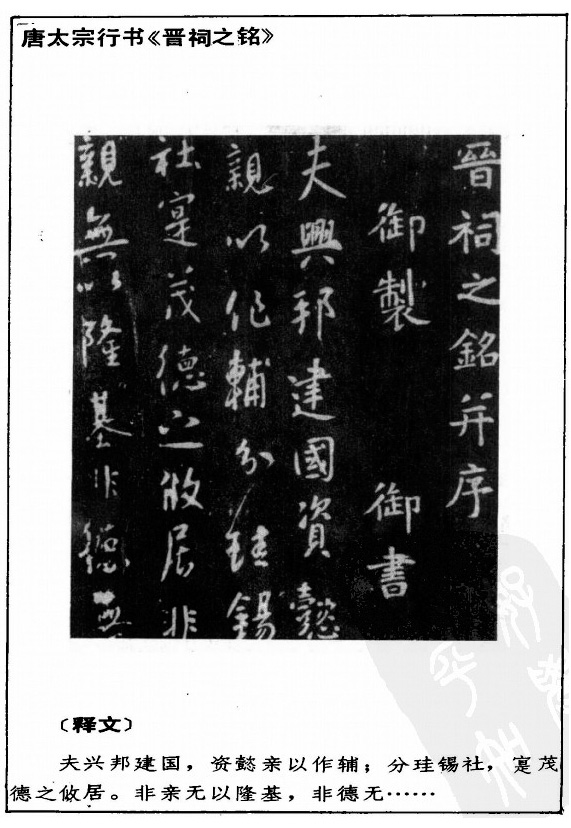 唐太宗行书《晋祠之铭》
晉祠之銘并序
御製 御書
夫興邦建國資懿
親以作輔分珪錫
社寔茂德之攸居非
親無以隆基非德無
〔释文〕
夫兴邦建国，资懿亲以作辅；分珪锡社，寔茂
德之攸居。非亲无以隆基，非德无……